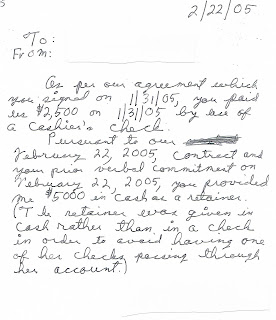 2/22/05
To:
From:
As per our agreement which
you signed on 1/31/05, you paid
us $2,500 on 1/31/05 by use of
a cashier's check.
Pursuant to our
February 22, 2005, contract and
your prior verbal commitment on
February 22, 2005, you provided
me $5000 in cash as a retainer.
(The retainer was given in
cash rather than in a check
in order to avoid having one
of her checks passing through
her account.)